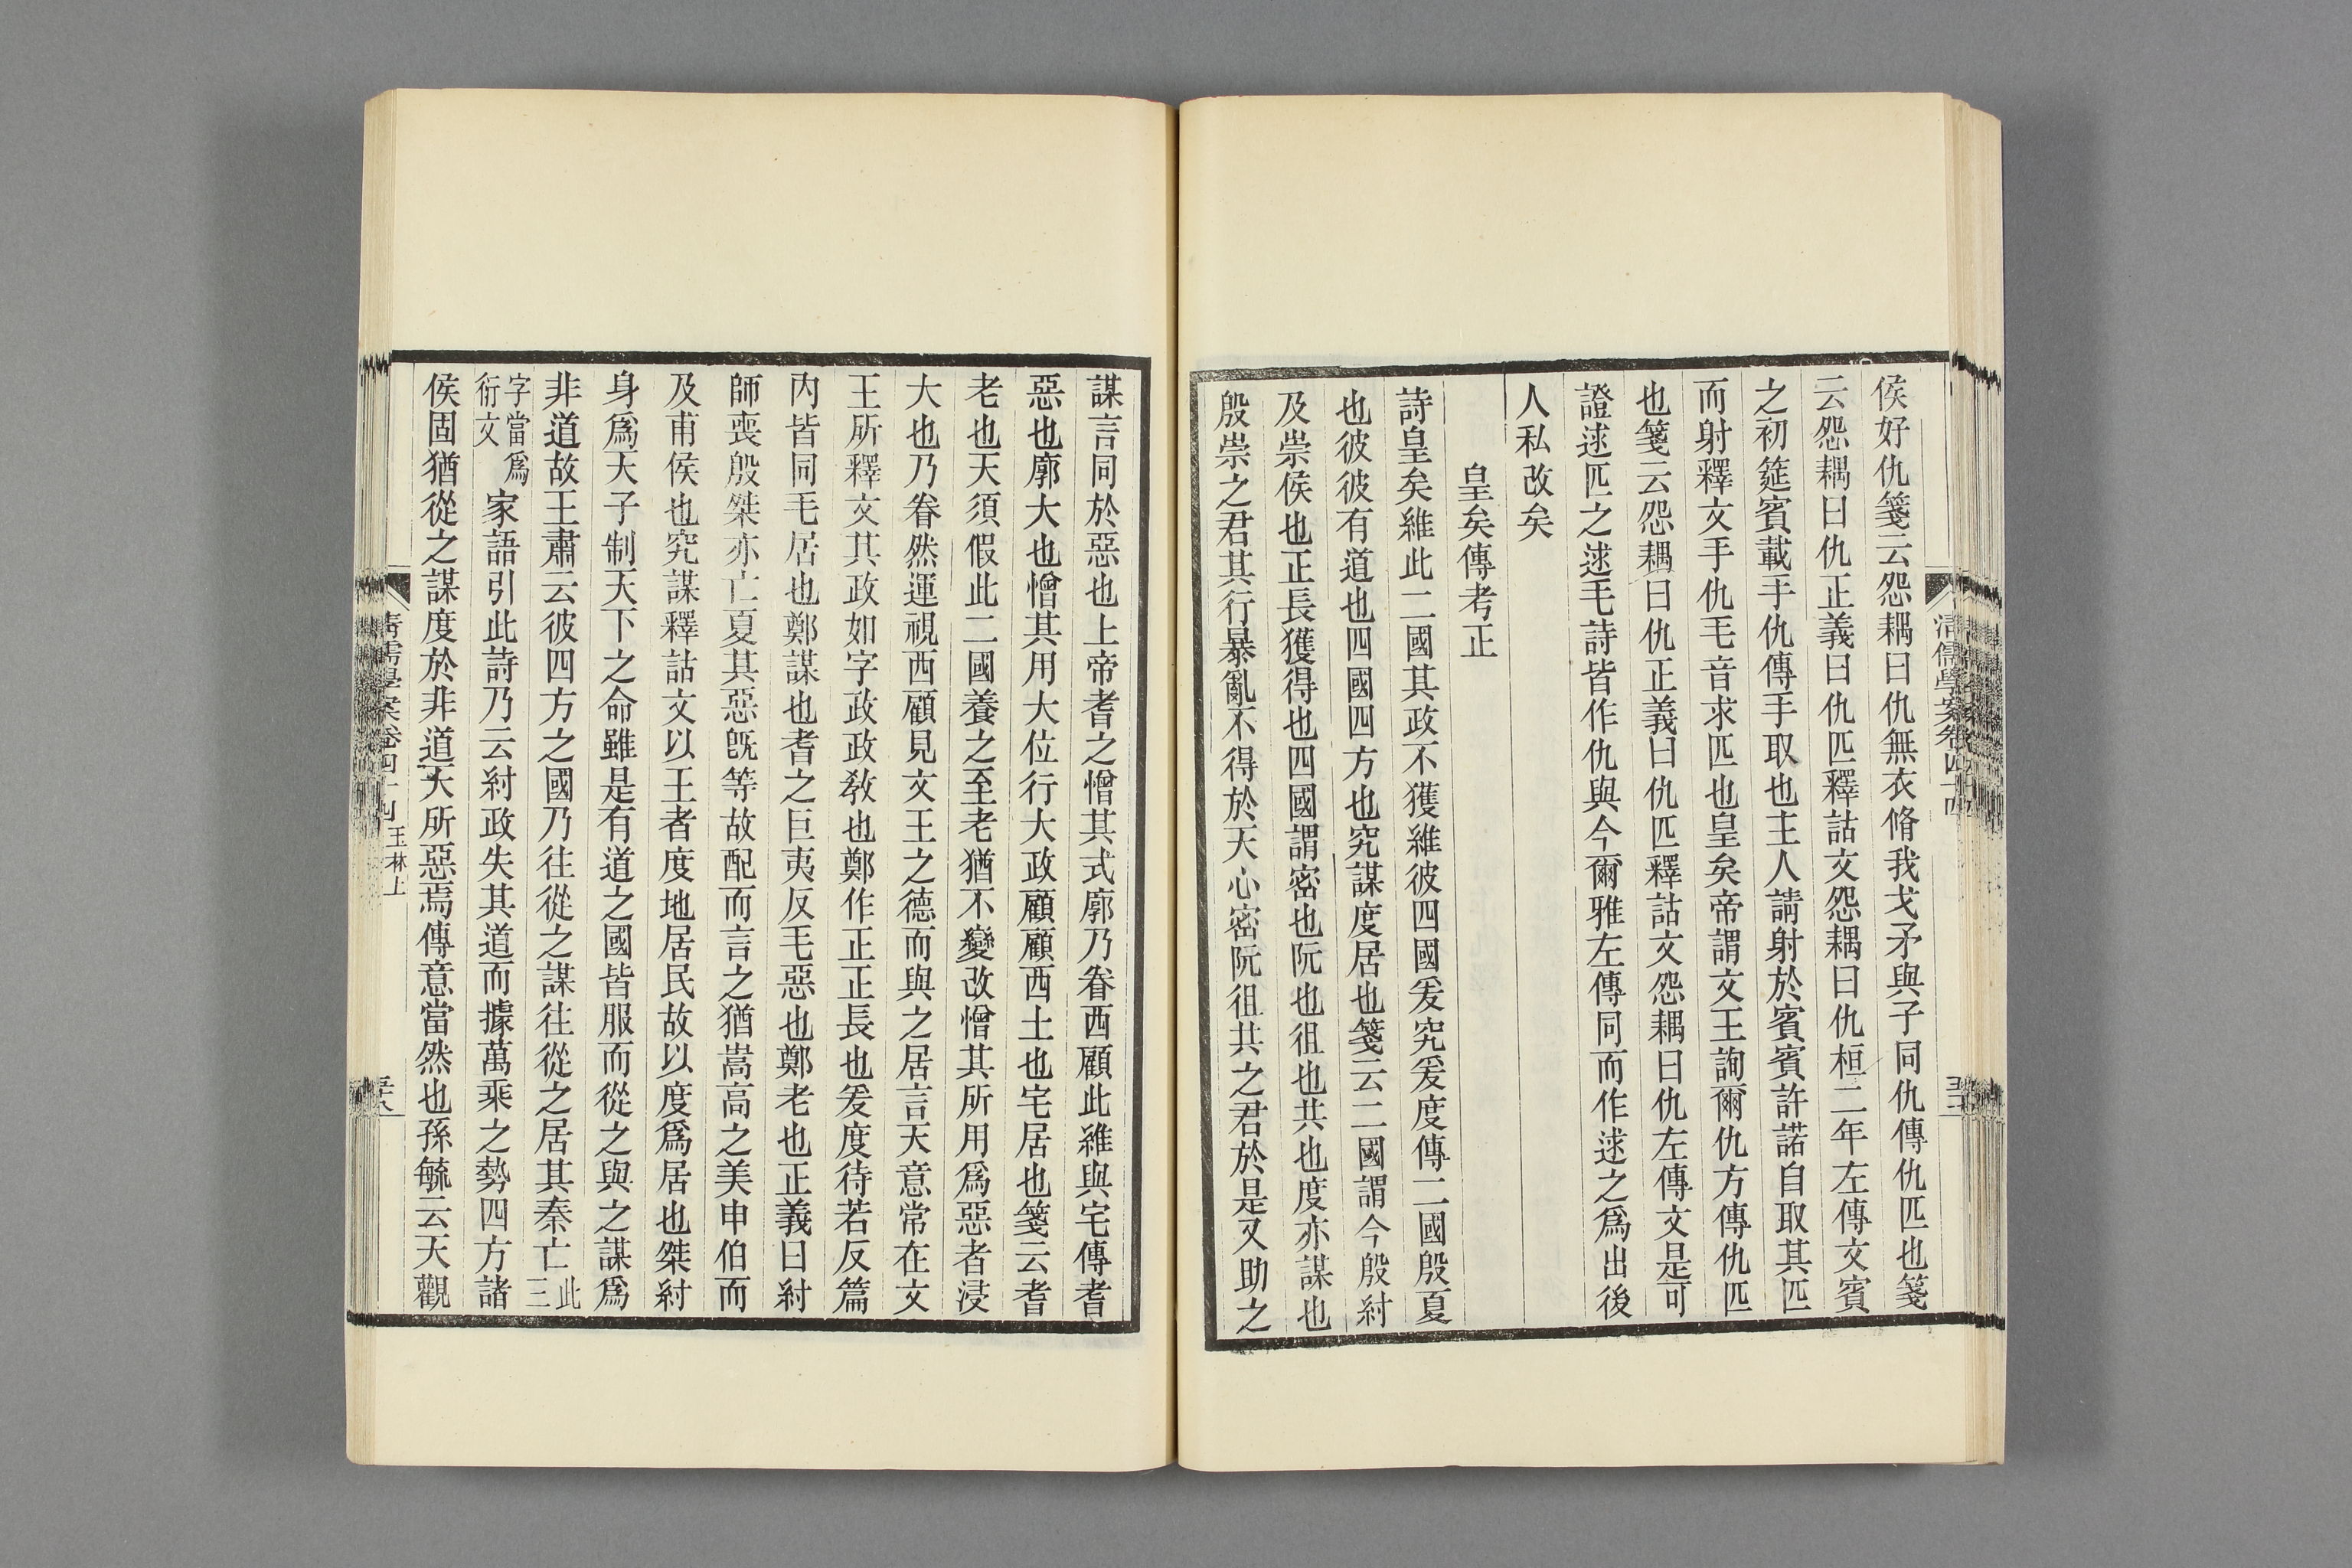 侯好仇箋云怨耦曰仇無衣脩我戈矛與子同仇傳仇匹也箋
云怨耦曰仇正義曰仇匹釋詁文怨耦曰仇桓二年左傳文賓
之初筵賓載手仇傳手取也主人請射於賓賓許諾自取其匹
而射釋文手仇毛音求匹也皇矣帝謂文王詢爾仇方傳仇匹
也箋云怨耦曰仇正義曰仇匹釋詁文怨耦曰仇左傳文是可
證逑匹之逑毛詩皆作仇與今爾雅左傳同而作逑之爲出後
人私改矣
皇矣傳考正
詩皇矣維此二國其政不獲維彼四國爰究爰度傳二國殷夏
也彼彼有道也四國四方也究謀度居也箋云二國謂今殷紂
及崇侯也正長獲得也四國謂密也阮也徂也共也度亦謀也
殷崇之君其行暴亂不得於天心密阮徂共之君於是又助之
謀言同於惡也上帝耆之憎其式廓乃眷西顧此維與宅傳耆
惡也廓大也憎其用大位行大政顧顧西土也宅居也箋云耆
老也天須假此二國養之至老猶不變改憎其所用爲惡者浸
大也乃眷然運視西顧見文王之德而與之居言天意常在文
王所釋文其政如字政政教也鄭作正正長也爰度待若反篇
內皆同毛居也鄭謀也耆之巨夷反毛惡也鄭老也正義曰紂
師喪殷桀亦亡夏其惡旣等故配而言之猶嵩高之美申伯而
及甫侯也究謀釋詁文以王者度地居民故以度爲居也桀紂
身爲天子制天下之命雖是有道之國皆服而從之與之謀爲
非道故王肅云彼四方之國乃往從之謀往從之居其秦亡此三
字當爲衍文家語引此詩乃云紂政失其道而據萬乘之勢四方諸
侯固猶從之謀度於非道天所惡焉傳意當然也孫毓云天觀
清儒學案卷四十四
玉林上